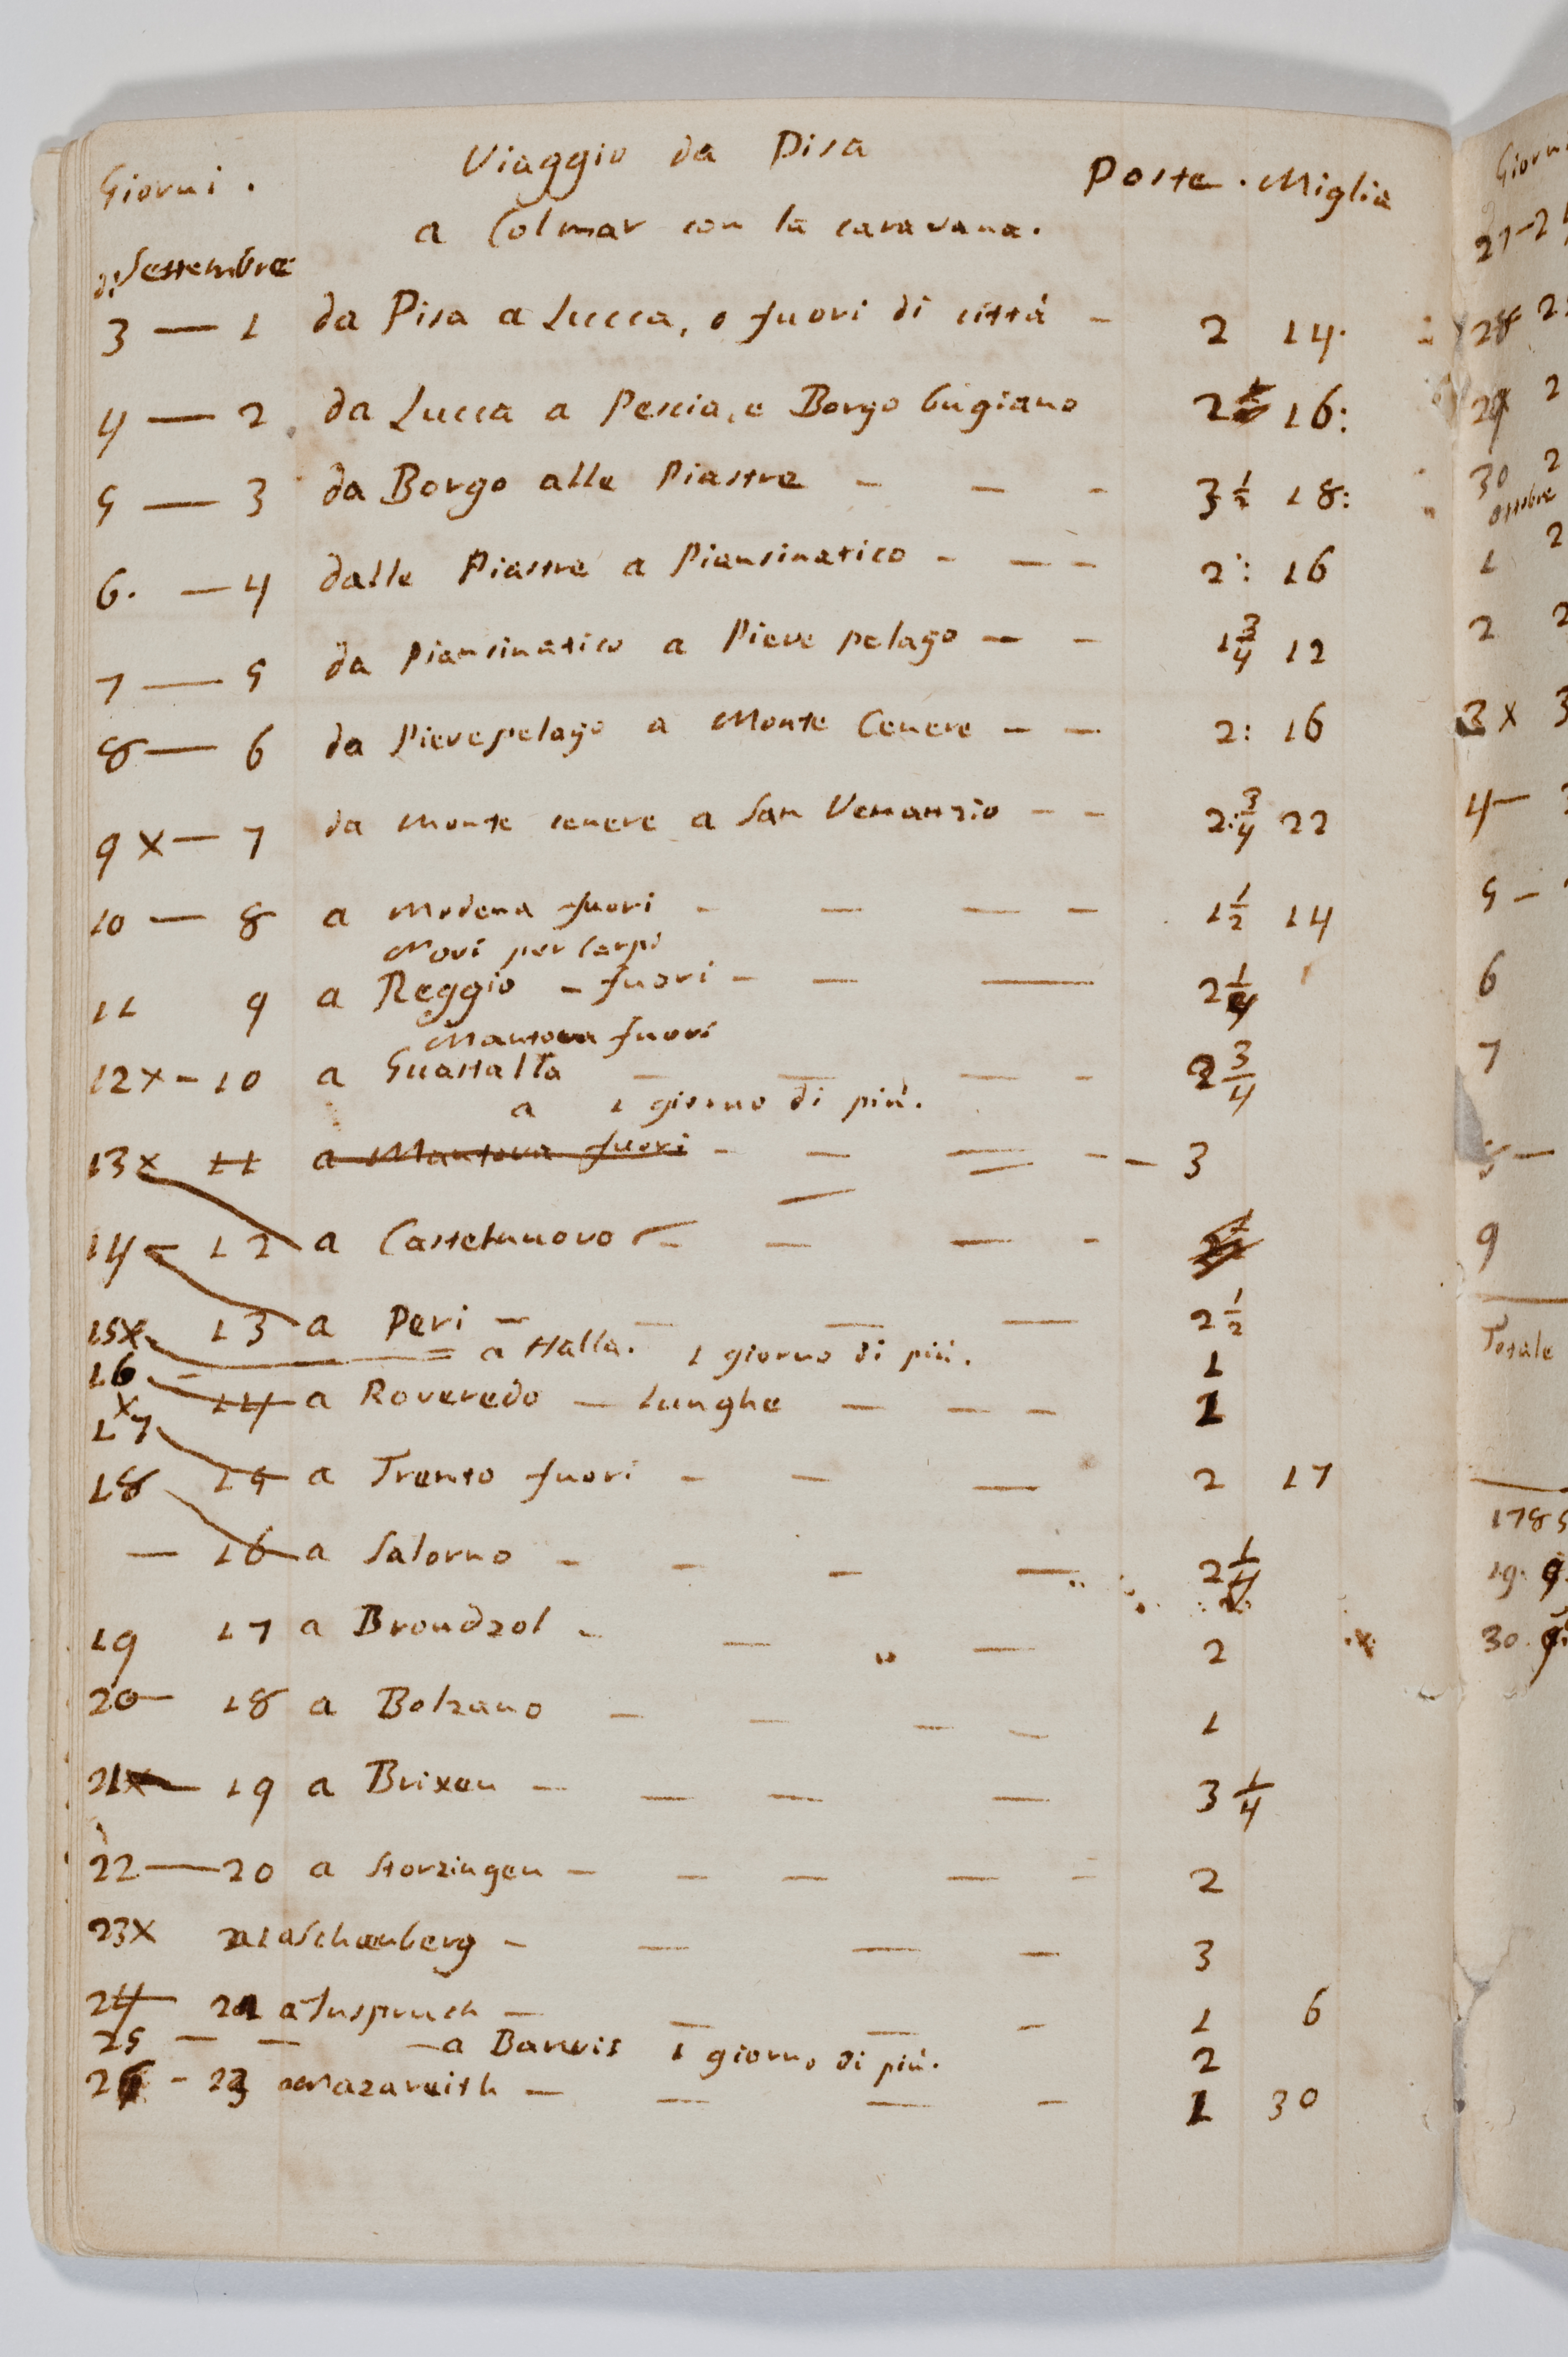 Giorni. Viaggio da Pisa Poste. Miglia
a Colmar con la caravana.
di Settembre
3 — 1 da Pisa a Lucca, o fuori di città — 2 14.
4 — 2 da Lucca a Pescia, e Borgo Bugiano 2 16:
5 — 3 da Borgo alle Piastre — — — 3 1/2 18:
6. — 4 dalle Piastre a Piansinatico — — — 2: 16
7 — 5 da Piansinatico a Pieve pelago — — 1 3/4 12
8 — 6 da Pievepelago a Monte Cenere — — 2: 16
9 x — 7 da Monte cenere a San Venanzio — — 2: 3/4 22
10 — 8 a Modena fuori — — — — 1 1/2 14
Novi per Carpi
11 9 a Reggio — fuori — — — 2 1/4
Mantova fuori
12 x — 10 a Guastalla — — — — 2 3/4
a 1 giorno di più.
13 x 11 a Mantova fuori — — — — — 3
14 — 12 a Castelnuovo — — — —
15 x 13 a Peri — — — — 2 1/2
= a Halla. 1 giorno di più. 1
16 — 14 a Roveredo — lunghe — — — 1
x
17 15 a Trento fuori — — — 2 17
18
— 16 a Salorno — — — — 2 1/4
19 17 a Brondzol — — — 2
20 — 18 a Bolzano — — — — 1
21 x — 19 a Brixen — — — — 3 1/4
22 — 20 a Storzingen — — — — — 2
23 x 21 a Schenberg — — — — 3
24 — 22 a Inspruch — — — — 1 6
25 — — — a Barvis 1 giorno di più. 2
26 — 23 a Nazareith — — — — 1 30
Giorni
27 — 2
28 2
29 2
30 2
Ottobre
1 2
2 2
3 x 3
4 —
5 —
6
7
8 —
9
Totale
178
19.
30.